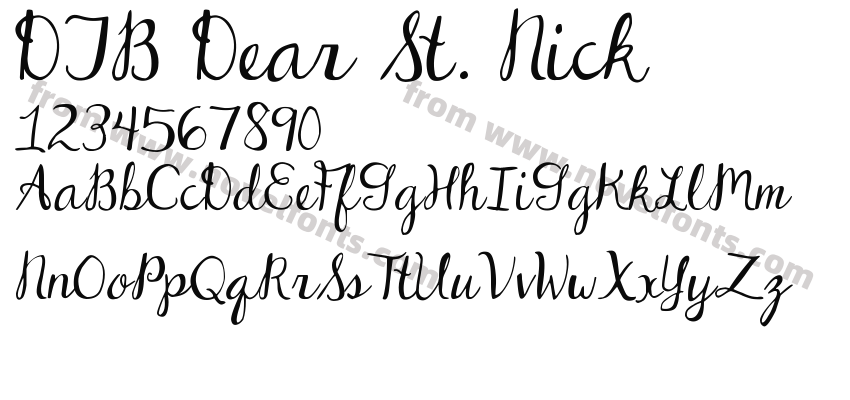 DJB Dear St. Nick
1234567890
AaBbCcDdEeFfGgHhIiJjKkLlMm
NnOoPpQqRrSsTtUuVvWwXxYyZz
from www.novelfonts.com
from www.novelfonts.com